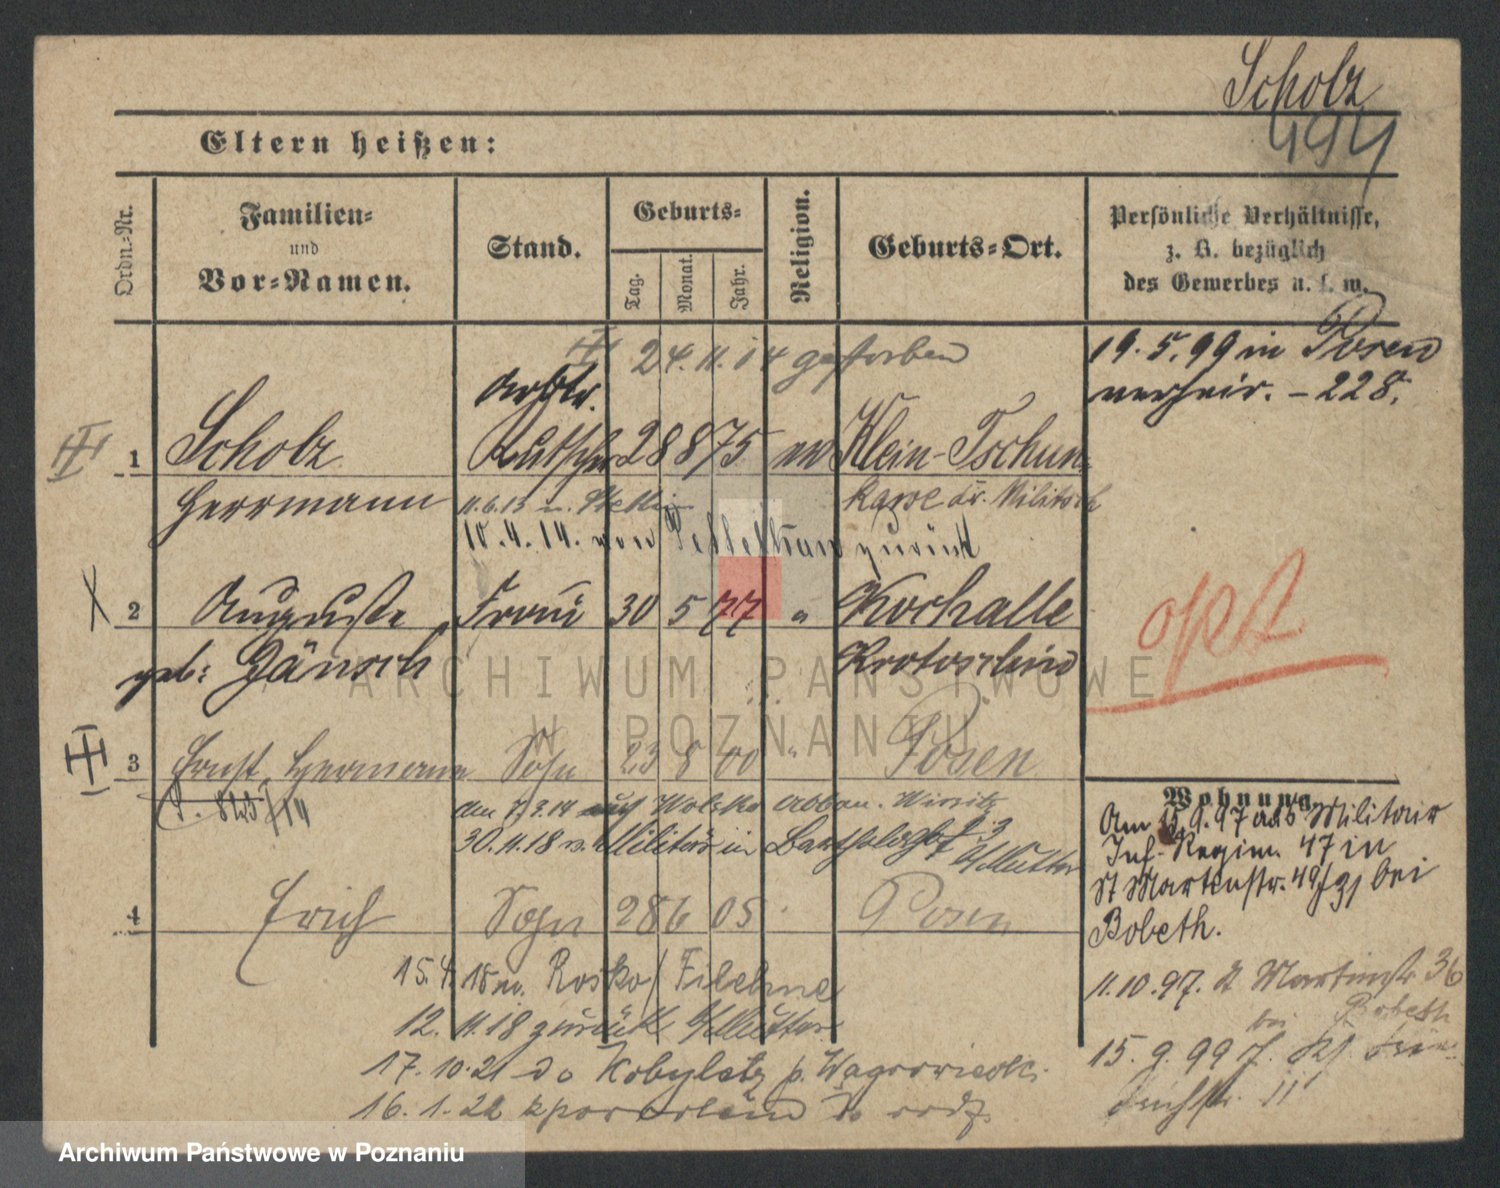 Scholz
494
Eltern heißen:
Ordn.-Nr.
Familien-
und
Vor-Namen.
Stand.
Geburts-
Tag.
Monat.
Jahr.
Religion.
Geburts-Ort.
Persönliche Verhältnisse,
z. B. bezüglich
des Gewerbes u. s. w.
24.11.14 gestorben
19.5.99 in Posen
verheir. - 228.
Arbtr.
1 Scholz Kutscher 28 8 75 ev Klein-Tschun
Herrmann 11.6.13 kawe Kr. Militsch
10.4.14. von zurück
2 Auguste Frau 30 5 77 " Kochalle
geb: Gänsch Krotoschin
opt
3 Ernst Hermann Sohn 23 8 00 " Posen
Am 7.3.14 auf Wolsko abbau. Wirsitz
30.11.18 v. Militär in
Mutter
4 Erich Sohn 28 6 05 Posen
15.4.18 n. Rosko / Filehne
12.11.18 zurück z. Mutter
17.10.21 do Kobyletz p. Wągrowiecki
16.1.22 z powrotem do rodz.
Wohnung
Am 15.9.97 als Militair
Inf-Regim. 47 in
St Martinstr. 49/31 bei
Bobeth.
11.10.97. St Martinstr 36
bei Bobeth
15.9.99
11
ARCHIWUM PAŃSTWOWE
W POZNANIU
Archiwum Państwowe w Poznaniu